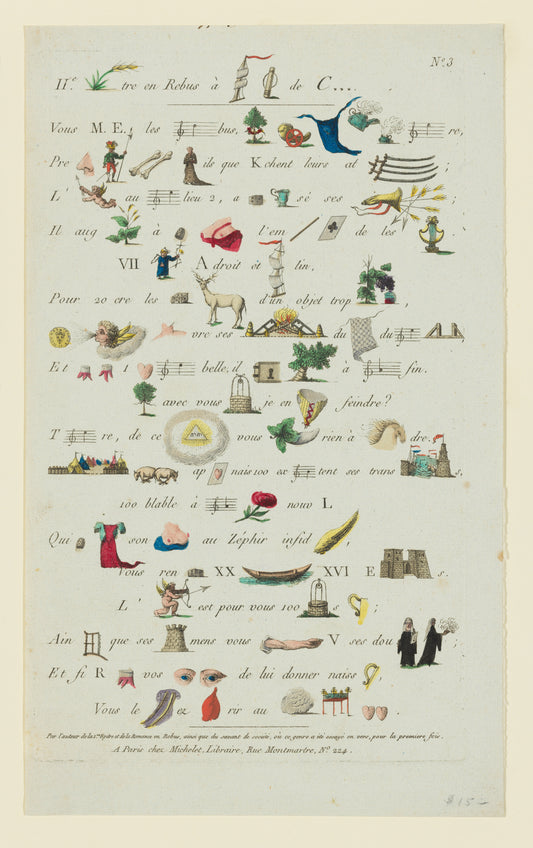 Nº 3
IIe. tre en Rebus à de C....
Vous M. E. les bus, re,
Pre ils que K chent leurs at ;
L' au lieu 2, a sé ses ;
Il aug à l'em de les .
VII A droit et lin,
Pour 20 cre les d'un objet trop ,
vre ses du du ,
Et 1 belle, il à fin.
avec vous je en feindre?
T re, de ce vous rien à dre.
ap nais 100 ex tent ses trans s,
100 blable à nouv L
Qui son au Zéphir infid ,
Vous ren XX XVI E s.
L' est pour vous 100 s ;
Ain que ses mens vous V ses dou ;
Et si R vos de lui donner naiss ,
Vous le ez rir au .
Par l'auteur de la 1re Epitre et de la Romance en Rebus, ainsi que du savant de société, où ce genre a été essayé en vers, pour la premiere fois.
A Paris chez Michelet, Libraire, Rue Montmartre, Nº 224.
$15-